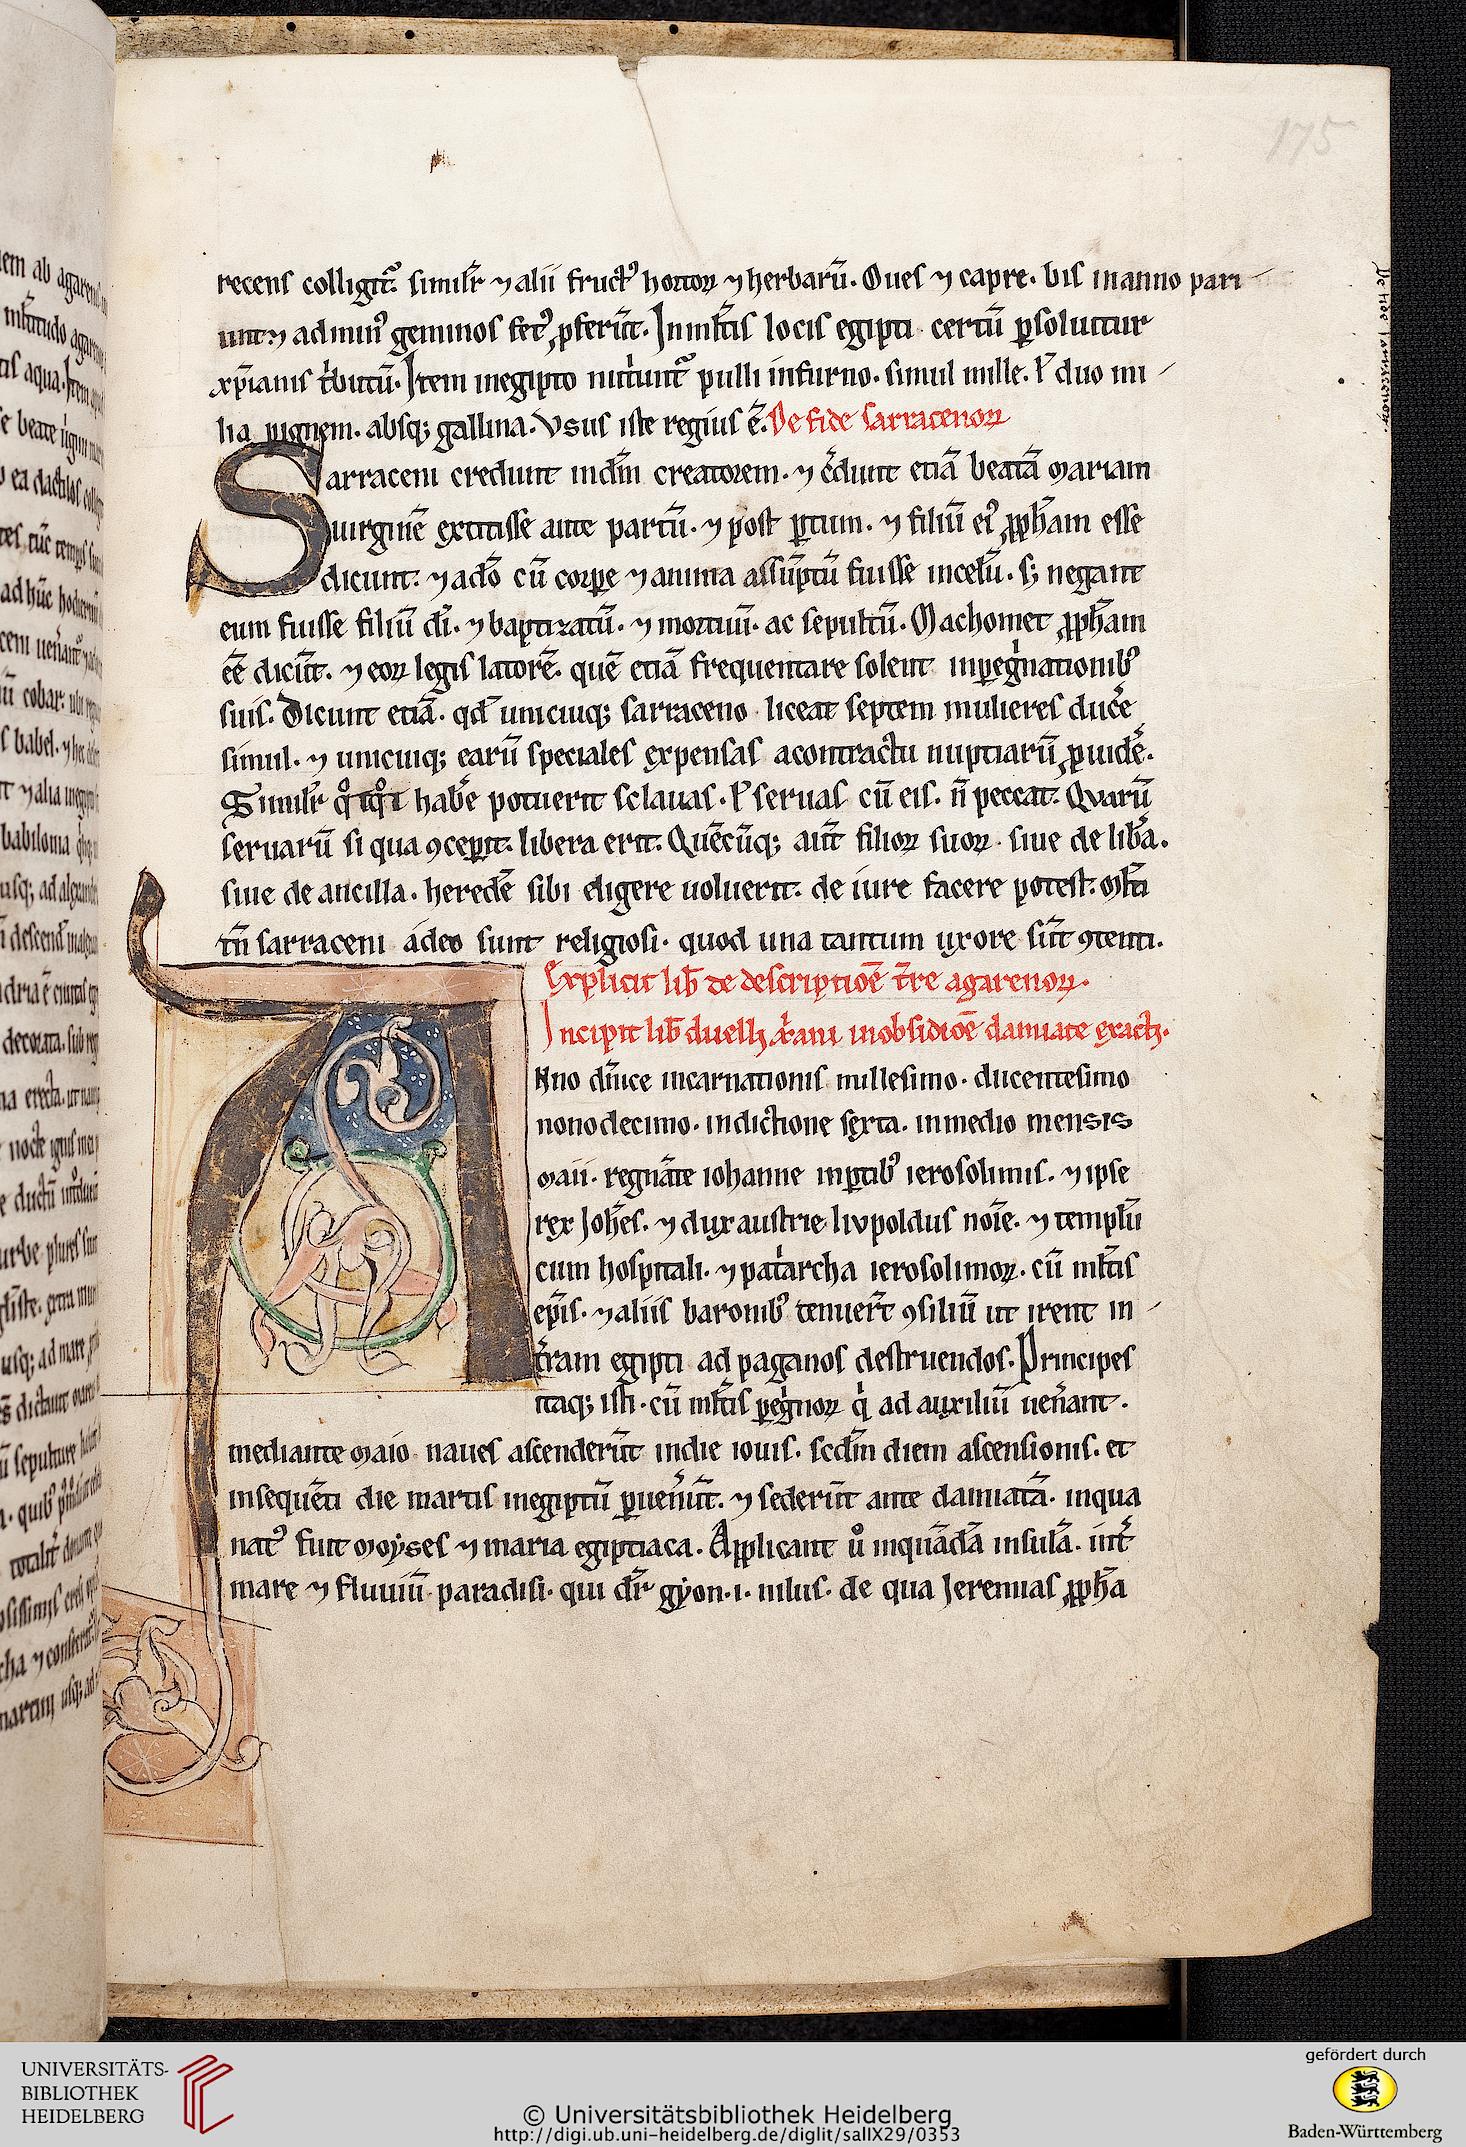 175
recens colligit᷑. simil̄r ⁊ alii fruct᷒ hortoꝝ ⁊ herbarū. Oues ⁊ capre. bis in anno pari
unt ⁊ ad min᷒ geminos fet᷒ ꝓferūt. In ml̄tis locis egipti certū ꝑsoluitur
xp̄ianis t̍butū. Item in egipto nut̍unt᷑ pulli in furno. simul mille. ł duo mi
lia iugnem. absq; gallina. Vsus iste regius ē. De fide sarracenoꝝ
Sarraceni credunt in dm̄ creatorem. ⁊ c̄dunt etiā beatā mariam
uirginē extitisse ante partū. ⁊ post ꝑtum. ⁊ filiū ei᷒ ꝓph̄am esse
dicunt. ⁊ a do̅ cū corpe ⁊ anima assūptū fuisse in celū. s; negant
eum fuisse filiū di̅. ⁊ baptizatū. ⁊ mortuū. ac sepultū. Machomet ꝓph̄am
ēē dicūt. ⁊ eoꝝ legis latorē. quē etiā frequentare solent in peg̍nationib᷒
suis. Dicunt etiā. qd̄ unicuiq; sarraceno liceat septem mulieres duc̄e
simul. ⁊ unicuiq; earū speciales expensas a contractu nuptiarū ꝓuidē.
Simil̄r qͦtqͦt hab̄e potuerit sclauas. ł seruas cū eis. n̄ peccat. Quarū
seruarū si qua ꝯcepit. libera erit. Quēcūq; aūt filioꝝ suoꝝ. siue de lib̄a.
siue de ancilla. heredē sibi eligere uoluerit. de iure facere potest. ml̄ti
tn̄ sarraceni adeo sunt religiosi. quod una tantum uxore sūt ꝯtenti.
Explicit lib̄ de descriptiōe t̄re agarenoꝝ.
Incipit lib̄ duelli x̄ani in obsidiōe damiate exacti.
Anno dn̄ice incarnationis millesimo. ducentesimo
nonodecimo. indictione sexta. in medio mensis
maii. regnāte iohanne in ꝑtib᷒ ierosolimis. ⁊ ipse
rex Joh̄es. ⁊ dux austrie livpoldus noīe. ⁊ templū
cum hospitali. ⁊ pat̍archa ierosolimoꝝ. cū ml̄tis
ep̄is. ⁊ aliis baronib᷒ tenuer̄t ꝯsiliū ut irent in
t̄ram egipti ad paganos destruendos. Principes
itaq; isti. cū ml̄tis peg̍noꝝ q̍ ad auxiliū uen̄ant.
mediante maio naues ascenderūt in die iouis. scdm̄ diem ascensionis. et
insequēti die martis in egiptū ꝑuen̄ūt. ⁊ sederūt ante damiatā. in qua
nat᷒ fuit moyses ⁊ maria egiptiaca. Applicant uͦ in quādā insulā. int̄
mare ⁊ fluuiū paradisi. qui dr̄ gyon .i. nilus. de qua Jeremias ꝓph̄a
UNIVERSITÄTS-
BIBLIOTHEK
HEIDELBERG
© Universitätsbibliothek Heidelberg
http://digi.ub.uni-heidelberg.de/diglit/salIX29/0353
gefördert durch
Baden-Württemberg